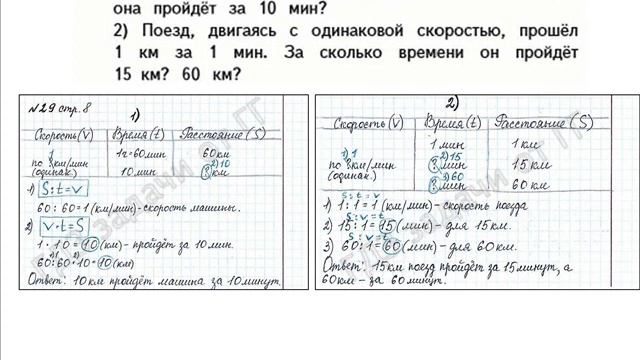 она пройдёт за 10 мин?
2) Поезд, двигаясь с одинаковой скоростью, прошёл
1 км за 1 мин. За сколько времени он пройдёт
15 км? 60 км?
№29 стр. 8
1)
Скорость (v) Время (t) Расстояние (S)
1ч=60мин 60км
1) 1
по ? км/мин 10 мин 2) 10
(одинак.) ? км
1) S:t=v
60:60=1 (км/мин)-скорость машины.
2) v·t=S
1·10=10 (км)-пройдёт за 10 мин.
60:60·10=10 (км)
Ответ: 10км пройдёт машина за 10минут.
2)
Скорость (v) Время (t) Расстояние (S)
1 мин 1 км
1) 1 2) 15
по ? км/мин ? мин 15 км
(одинак.) 3) 60
? мин 60 км
S:t=v
1) 1:1=1 (км/мин)-скорость поезда
S:v=t
2) 15:1=15 (мин)-для 15км.
S:v=t
3) 60:1=60 (мин)-для 60км.
Ответ: 15км поезд пройдёт за 15минут, а
60км-за 60минут.